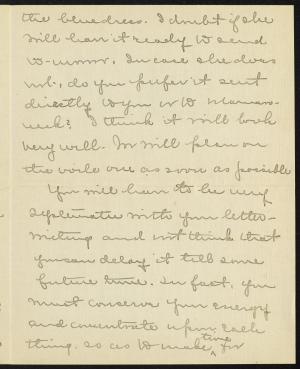 the blue dress. I doubt if she
will have it ready to send
to-morrow. In case she does
not, do you prefer it sent
directly to you or to Mamaro-
neck? I think it will look
very well. We will plan on
the voile one as soon as possible
You will have to be very
systematic with your letter-
writing and not think that
you can delay it till some
future time. In fact, you
must conserve your energy
and concentrate upon each
thing. so as to make time for